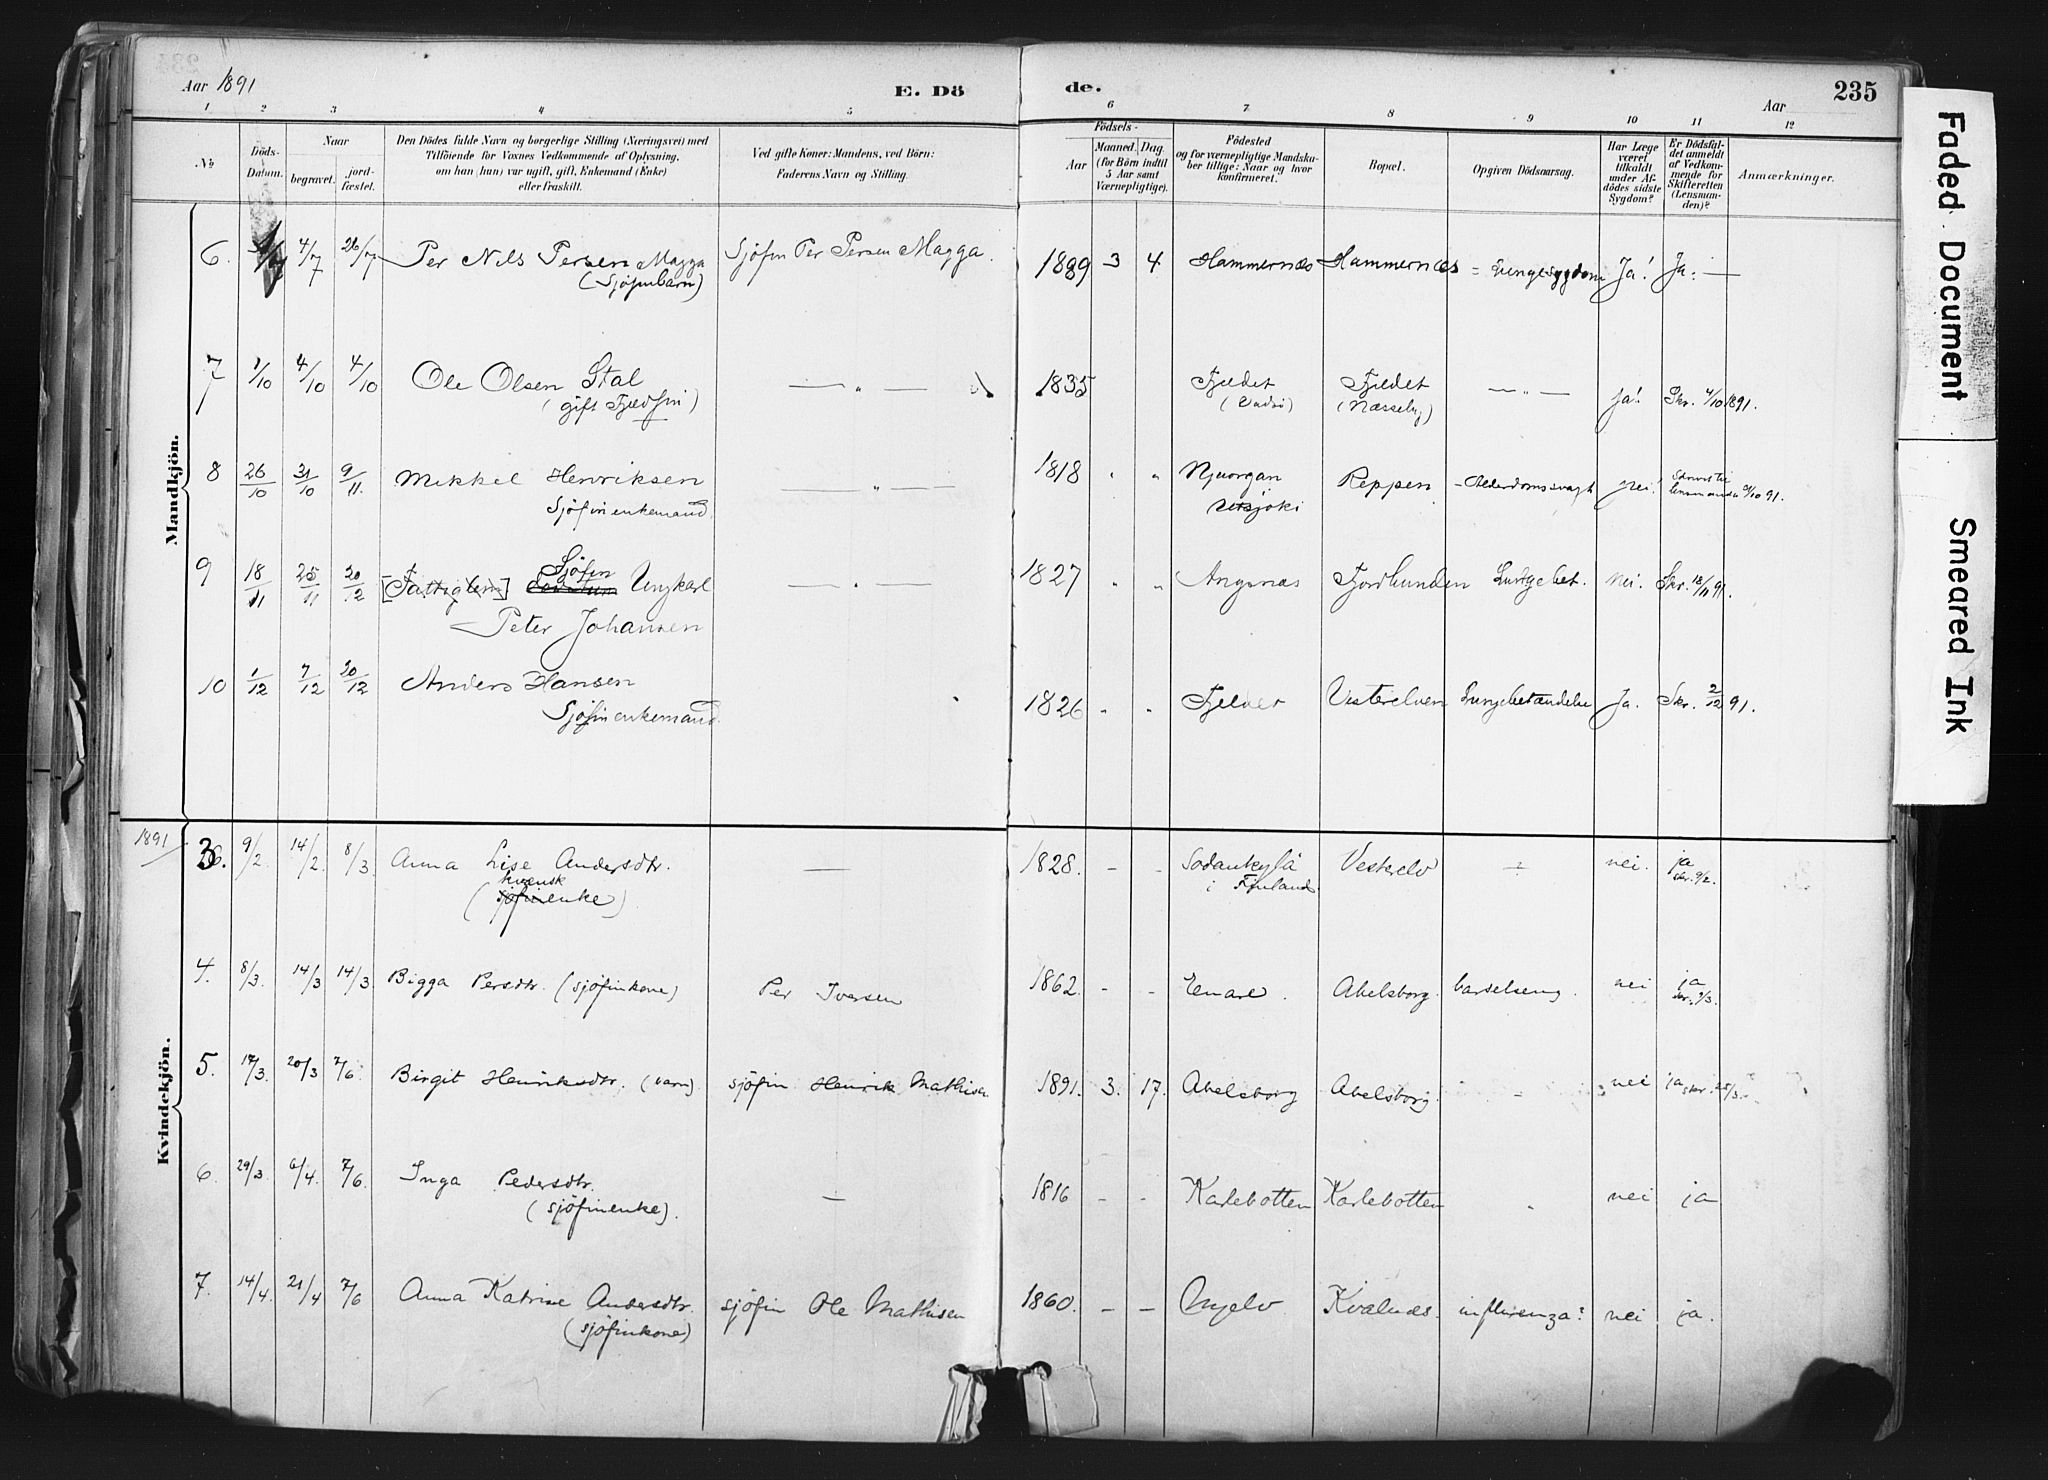 Aar 1891
E. Dö
de.
Aar
235
1 2 3 4 5 6 7 8 9 10 11 12
No.
Döds-Datum.
Naar
begravet.
jordfæstet.
Den Dödes fulde Navn og borgerlige Stilling (Næringsvei) med
Tilföiende for Voxnes Vedkommende af Oplysning,
om han (hun) var ugift, gift, Enkemand (Enke)
eller fraskilt.
Ved gifte Koner: Mandens, ved Börn:
Faderens Navn og Stilling.
Födsels-
Aar
Maaned. Dag
(for Börn indtil
5 Aar samt
Værnepligtige).
Födested
og for værnepligtige Mandska-
ber tillige: Naar og hvor
konfirmeret.
Bopæl.
Opgiven Dödsaarsag.
Har Læge
været
tilkaldt
under Af-
dödes sidste
Sygdom?
Er Dödsfal-
det anmeldt
af Vedkom-
mende for
Skifteretten
(Lensman-
den)?
Anmærkninger.
Mandkjön.
6. 4/7 26/7 Per Nils Persen Magga Sjöfin Per Persen Magga. 1889 3 4 Hammernæs Hammernæs = Lungesygdom Ja! Ja: —
(Sjöfinbarn)
7 1/10 4/10 4/10 Ole Olsen Stal — „ — 1835 Fjeldet Fjeldet — „ — Ja! Skr. 4/10 1891.
(gift Fjeldfin) (Vadsö) (Næsseby)
8 26/10 31/10 9/11. Mikkel Henriksen — „ — 1818 „ „ Njuorgan Reppen - Alderdomssvagh nei!
Sjöfin enkemand Utsjoki
9 18/11 25/11 20/12 [Fattiglem] Sjöfin Ungkarl — „ — 1827 „ „ Angsnæs Fjordbunden Lungebet. nei. Skr. 18/11 91.
Peter Johansen
10 1/12 7/12 20/12 Anders Hansen 1826 „ „ Fjeldet Vesterelven Lungebetændelse Ja. Skr. 2/12 91.
Sjöfin enkemand
1891
Kvindekjön.
3. 9/2. 14/2. 8/3. Anna Lise Andersdtr. — 1828. - - Sodankylä Veskelv ÷ nei. ja
kvensk i Finland. skr. 9/2.
(sjöfinenke)
4. 8/3. 14/3 14/3 Bigga Persdtr. (sjöfinkone) Per Iversen 1862. - - Enare. Abelsborg. barselseng. nei ja
skr. 9/3.
5. 17/3. 20/3 7/6. Birgit Henriksdtr. (barn). sjöfin Henrik Mathisen 1891. 3. 17. Abelsborg Abelsborg. - nei ja skr. 25/3.
6. 29/3. 6/4. 7/6. Inga Pedersdtr. — 1816 - - Karlebotten Karlebotten „ nei ja
(sjöfinenke).
7. 14/4. 21/4 7/6 Anna Katrine Andersdtr. sjöfin Ole Mathisen 1860. — — Nyelv Kvalnæs. influenza? nei ja.
(sjöfinkone)
Faded Document
Smeared Ink